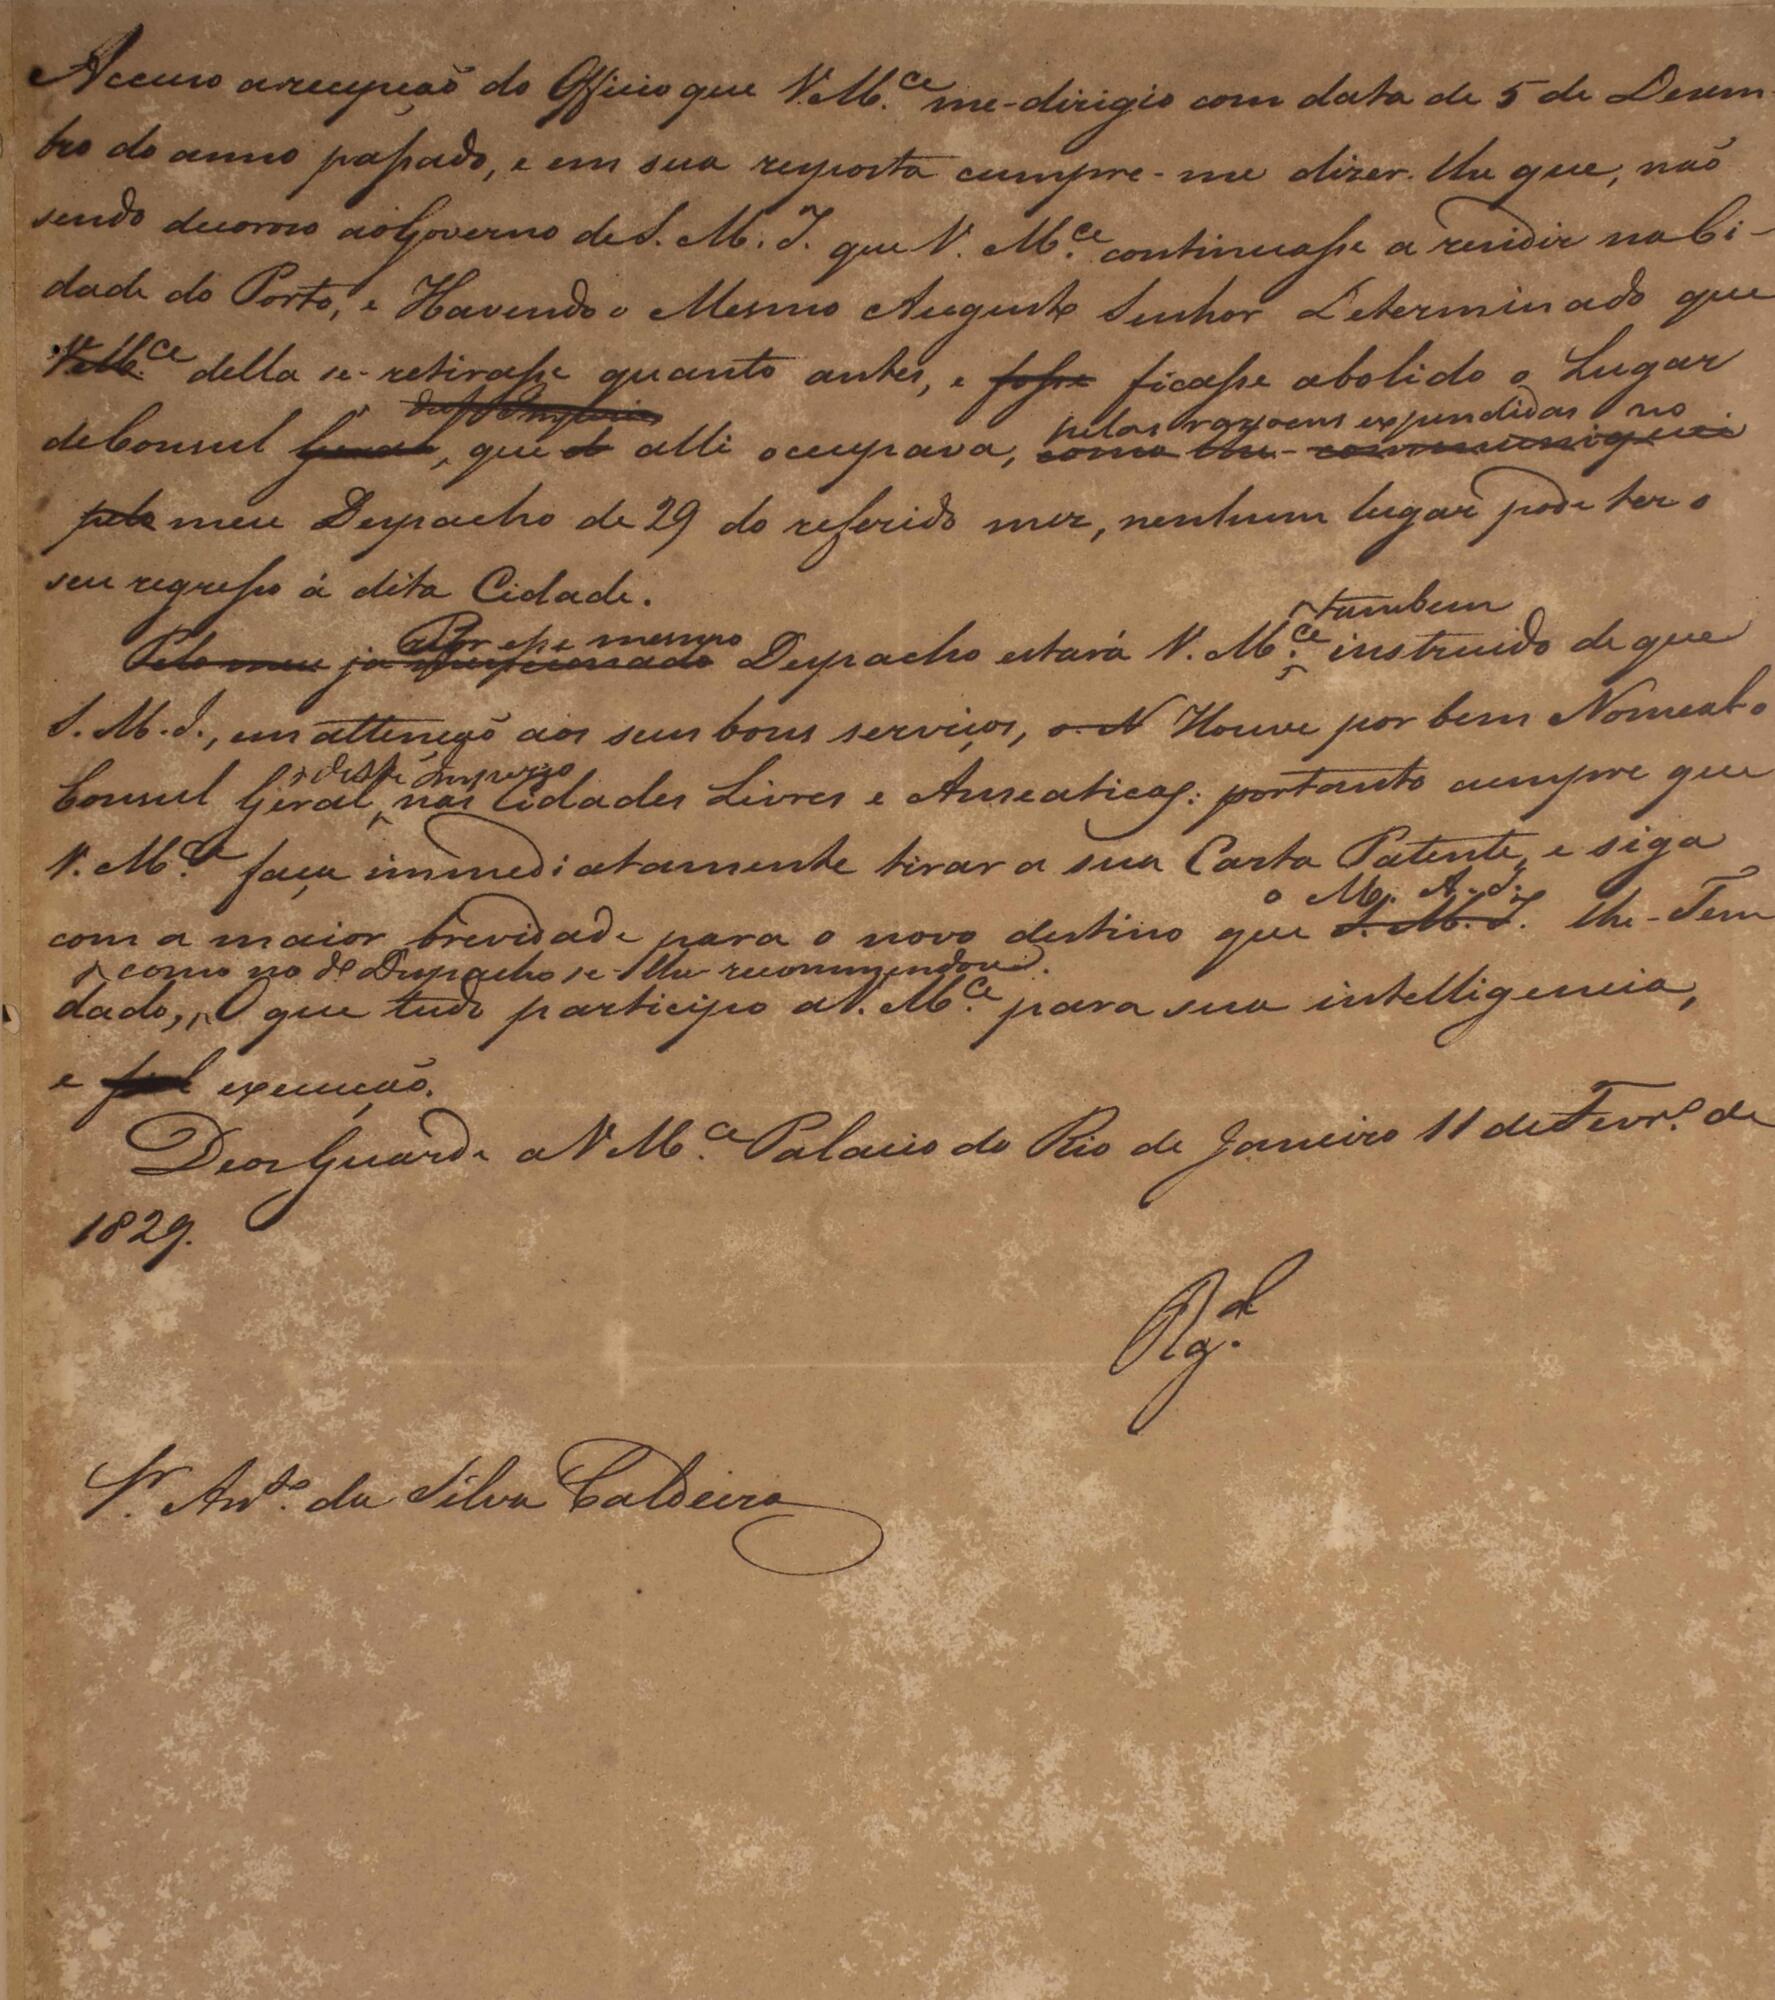 Accuso a recepção do Officio que V. M.ce me-dirigio com data de 5 de Dezem-
bro do anno passado, e em sua resposta cumpre-me dizer-lhe que, não
sendo decoroso ao Governo de S. M. I. que V. M.ce continuasse a residir na Ci-
dade do Porto, e Havendo o Mesmo Augusto Senhor Determinado que
V. M.ce della se-retirasse quanto antes, e fosse ficasse abolido o Lugar
pelas razoens expendidas no
de Consul Geral, que alli occupava, como lhe-communiquei
pelo meu Despacho de 29 do referido mez, nenhum lugar pode ter o
seu regresso á dita Cidade.
Por esse mesmo tambem
Pelo meu já Despacho estará V. M.ce instruido de que
S. M. I., em attenção aos seus bons serviços, o N Houve por bem Nomeal-o
deste Imperio
Consul Geral nas Cidades Livres e Anseaticas: portanto cumpre que
V. M.ce faça immediatamente tirar a sua Carta Patente, e siga
o M. A. S.
com a maior brevidade para o novo destino que S. M. I. lhe-Tem
como no do Despacho se-lhe recommendou.
dado, O que tudo participo a V. M.ce para sua intelligencia,
e fiel execução.
Deos Guarde a V. M.ce Palacio do Rio de Janeiro 11 de Fevr.o de
1829.
Sr. Ant.o da Silva Caldeira